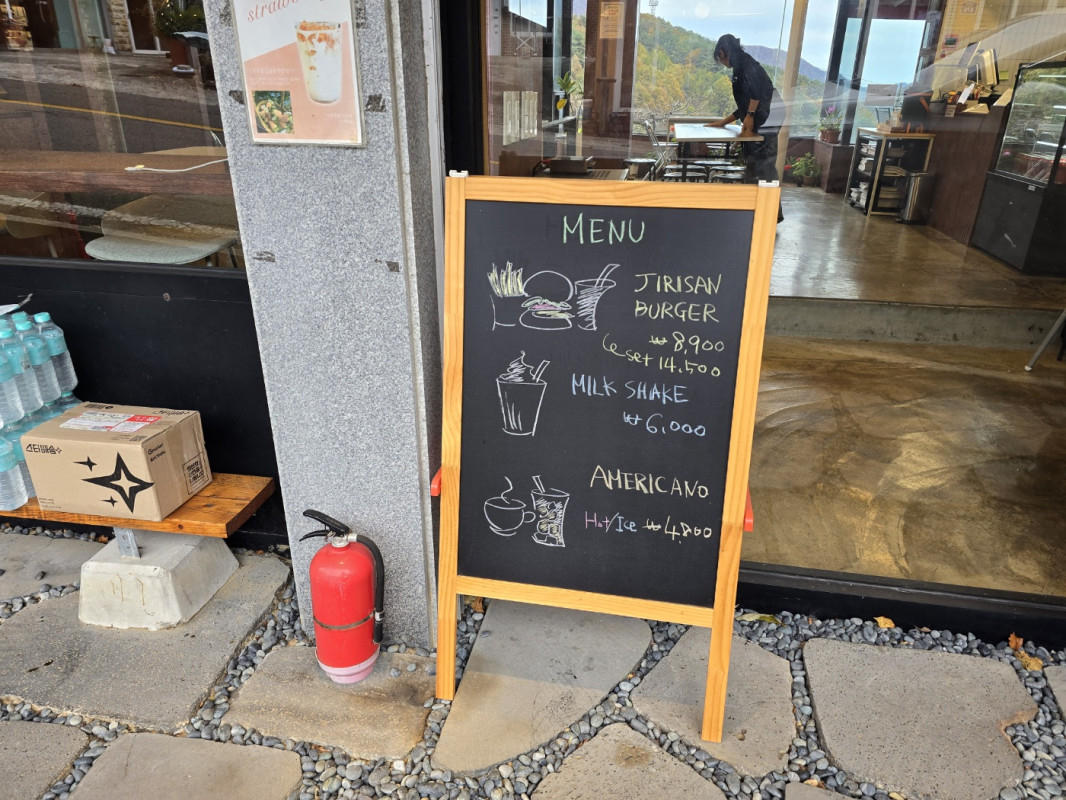 MENU
JIRISAN
BURGER
₩8,900
set 14,500
MILK SHAKE
₩6,000
AMERICANO
Hot/Ice ₩4,800